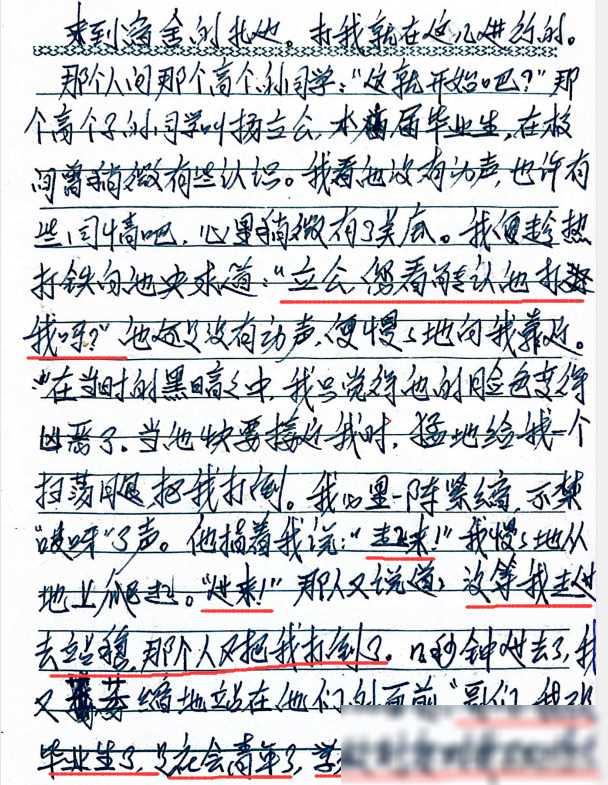 来到宿舍的北边。打我就在这儿进行的。
那个人问那个高个的同学：“这就开始吧？”那
个高个子的同学叫杨立公，本届毕业生，在校
间曾稍微有些认识。我看他没有动声，也许有
些同情吧，心里稍微有了关底。我便趁热
打铁向他央求道：“立公，你看能让他打
我吗？”他还只没有动声，便慢慢地向我靠近。
在当时的黑暗之中，我只觉得他的脸色变得
凶恶了。当他快要接近我时，猛地给我一个
扫荡腿，把我打倒。我心里一阵紧缩，不禁
“哎呀”了声。他揣着我说：“起来！”我慢慢地从
地上爬起。“进来！”那人又说道；没等我走过
去站稳，那个人又把我打倒了。几秒钟过去了，我
又萎缩地站在他们的面前“哥们，我
毕业生了，只在会青年了，学